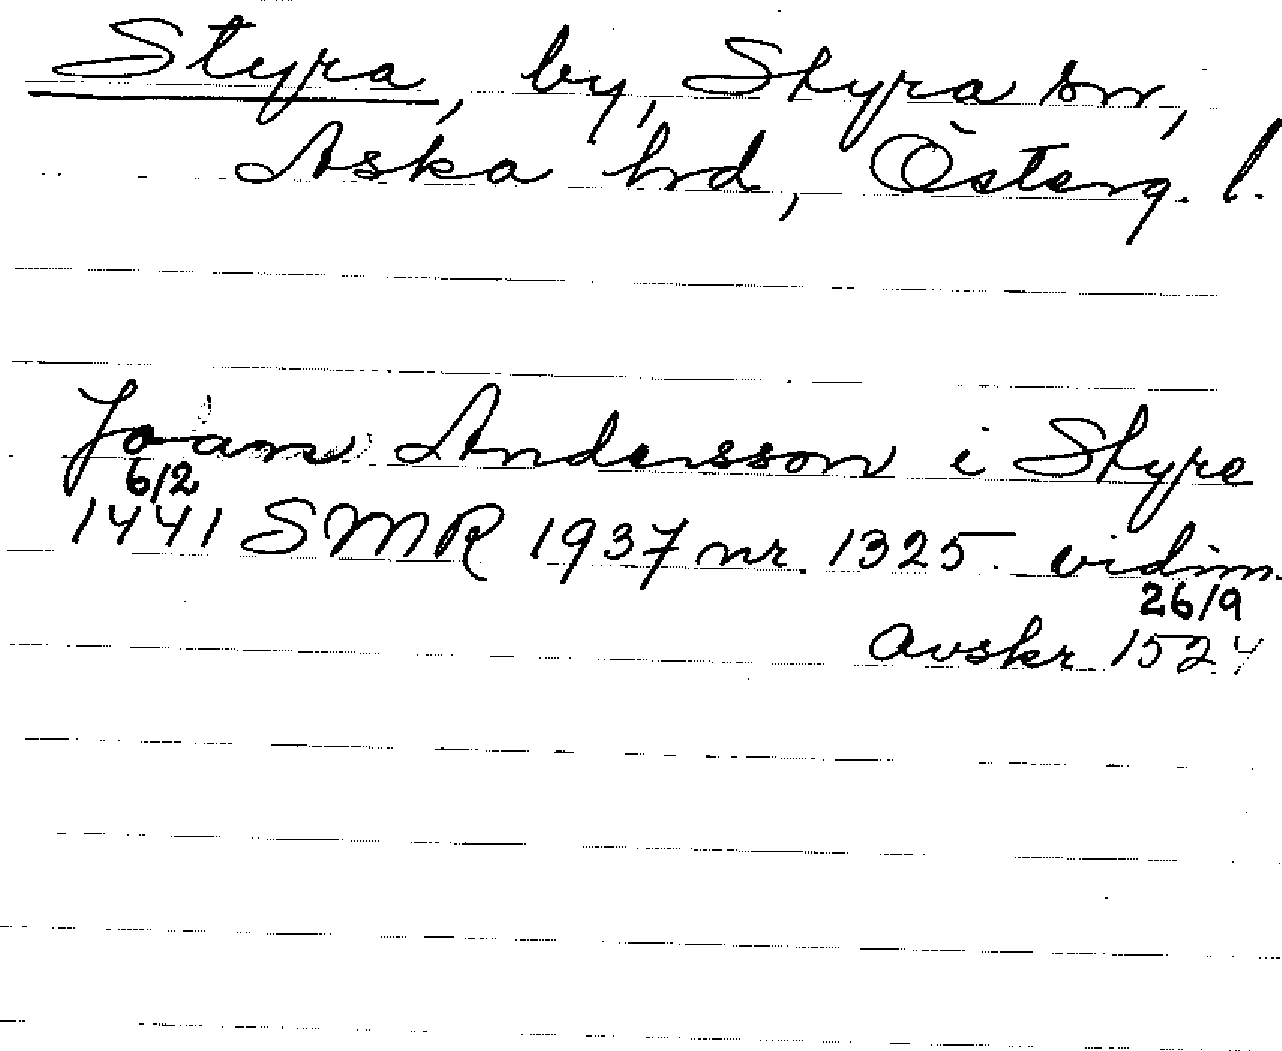 Styra, by, Styra sn,
Aska hd, Österg. l.
Joans Andersson i Styre
6/2
1441 SMR 1937 nr. 1325. vidim.
26/9
avskr. 1524